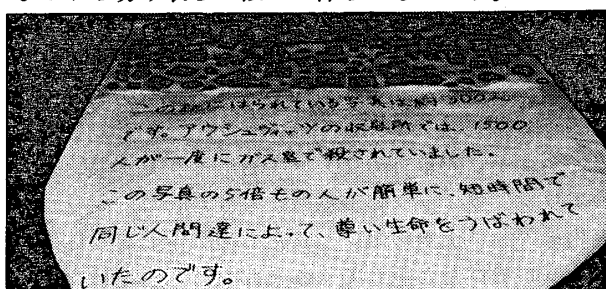 この紙にはられている写真は約300人
です。アウシュヴィッツの収容所では、1500
人が一度にガス室で殺されていました。
この写真の5倍もの人が簡単に、短時間で
同じ人間達によって、尊い生命をうばわれて
いたのです。